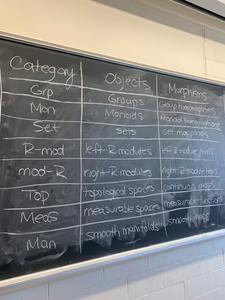 Category Objects Morphisms
Grp Groups Group homomorphisms
Mon Monoids Monoid homomorphisms
Set sets set mappings
R-mod left-R modules left R-module
mod-R right-R modules right R-module
Top topological spaces continuous maps
Meas measurable spaces measurable functions
Man smooth manifolds smooth maps